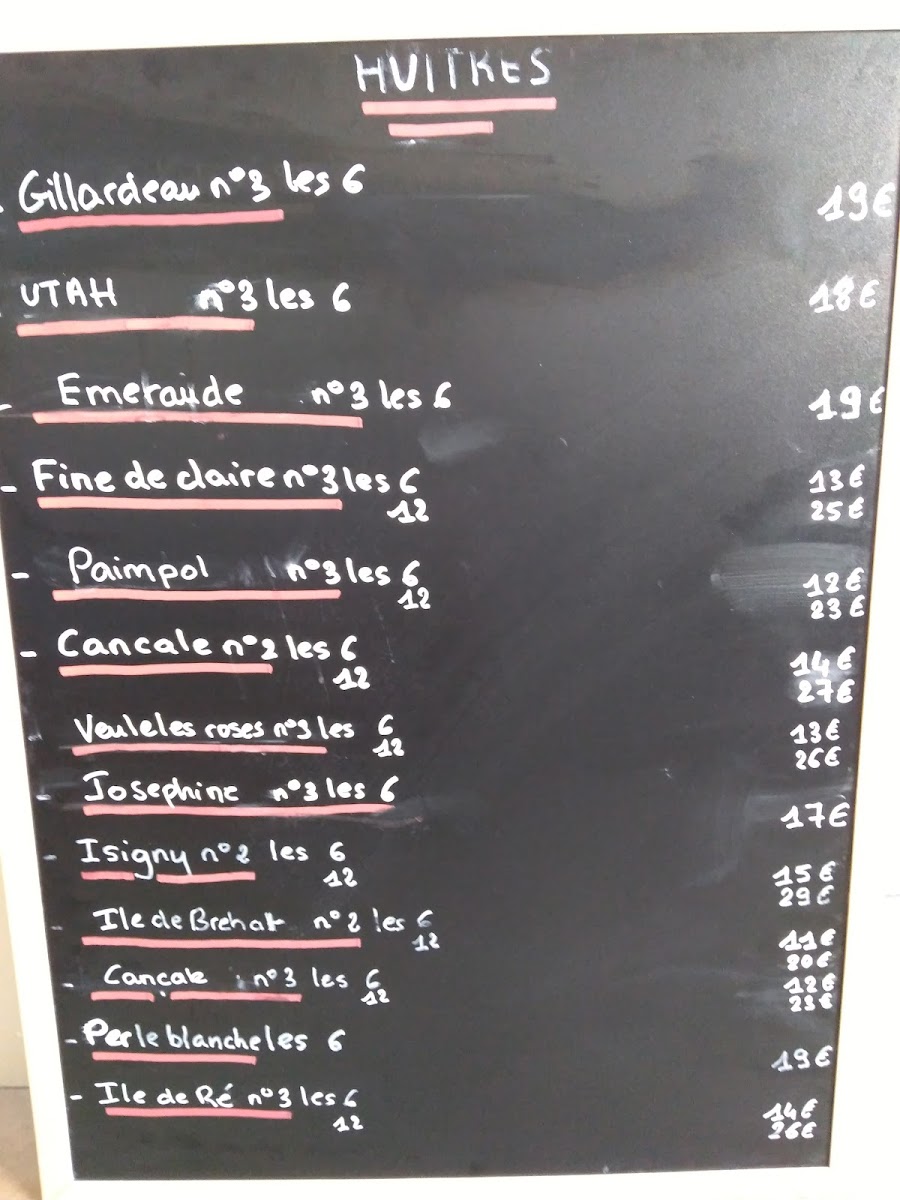 HUITRES
Gillardeau n°3 les 6 19€
UTAH n°3 les 6 18€
- Emeraude n°3 les 6 19€
- Fine de claire n°3 les 6 13€
12 25€
- Paimpol n°3 les 6 12€
12 23€
- Cancale n°2 les 6 14€
12 27€
Veules les roses n°3 les 6 13€
12 26€
- Josephine n°3 les 6 17€
- Isigny n°2 les 6 15€
12 29€
- Ile de Brehat n°2 les 6 11€
12 20€
- Cancale n°3 les 6 12€
12 23€
- Perle blanche les 6 19€
- Ile de Ré n°3 les 6 14€
12 26€